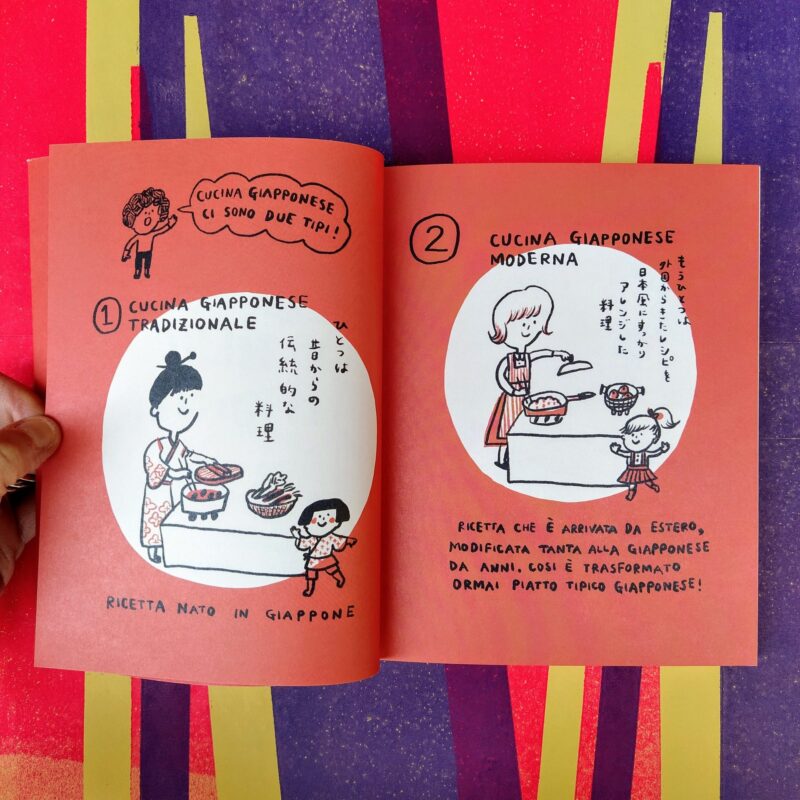 CUCINA GIAPPONESE
CI SONO DUE TIPI!
1 CUCINA GIAPPONESE
TRADIZIONALE
ひとつは
昔からの
伝統的な
料理
RICETTA NATO IN GIAPPONE
2 CUCINA GIAPPONESE
MODERNA
もうひとつは
外国からきたレシピを
日本風にすっかり
アレンジした
料理
RICETTA CHE È ARRIVATA DA ESTERO,
MODIFICATA TANTA ALLA GIAPPONESE
DA ANNI. COSI È TRASFORMATO
ORMAI PIATTO TIPICO GIAPPONESE!